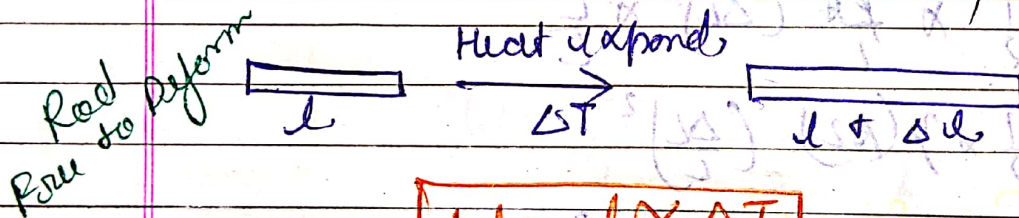 Rod free to Deform
Heat expands
l
ΔT
l + Δl
ΔT